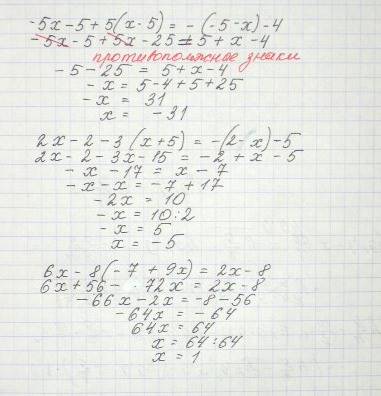 -5x-5+5(x-5) = -(-5-x)-4
-5x-5+5x-25 = 5+x-4
противоположные знаки
-5-25 = 5+x-4
-x = 5-4+5+25
-x = 31
x = -31
2x-2-3(x+5) = -(2-x)-5
2x-2-3x-15 = -2+x-5
-x-17 = x-7
-x-x = -7+17
-2x = 10
-x = 10:2
-x = 5
x = -5
6x-8(-7+9x) = 2x-8
6x+56-72x = 2x-8
-66x-2x = -8-56
-64x = -64
64x = 64
x = 64:64
x = 1